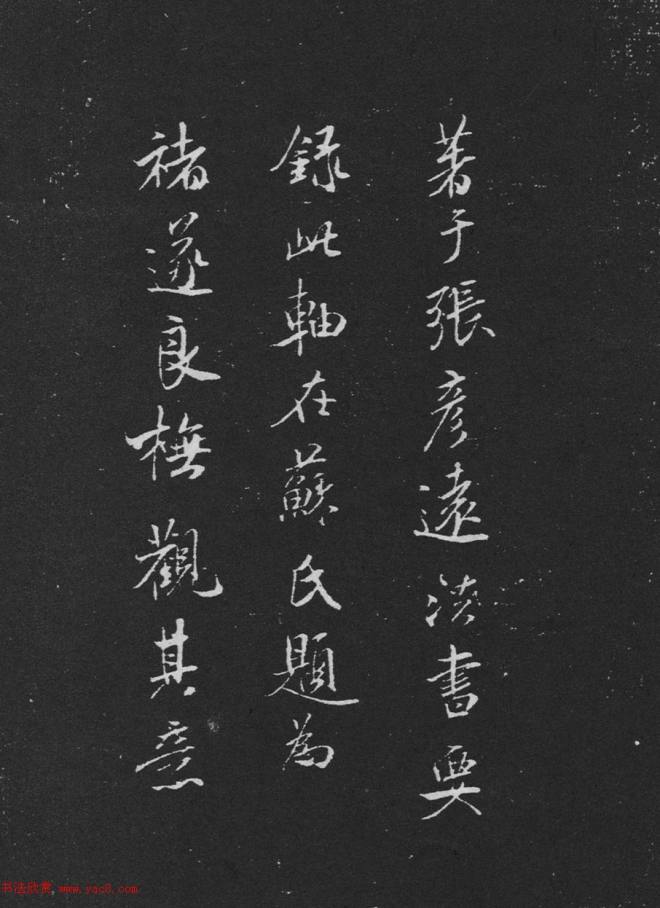 著于張彥遠法書要
録此軸在蘇氏題為
褚遂良橅觀其意
书法欣赏.www.yac8.com